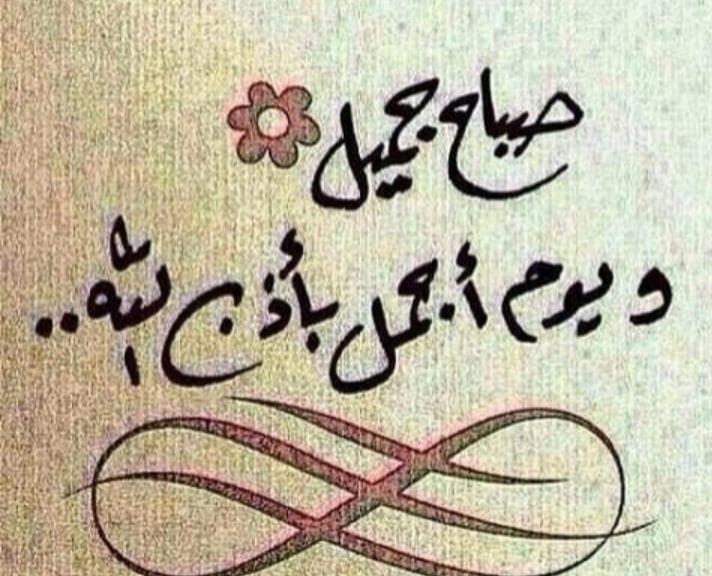 صباح جميل
و يوم أجمل بأذن الله..